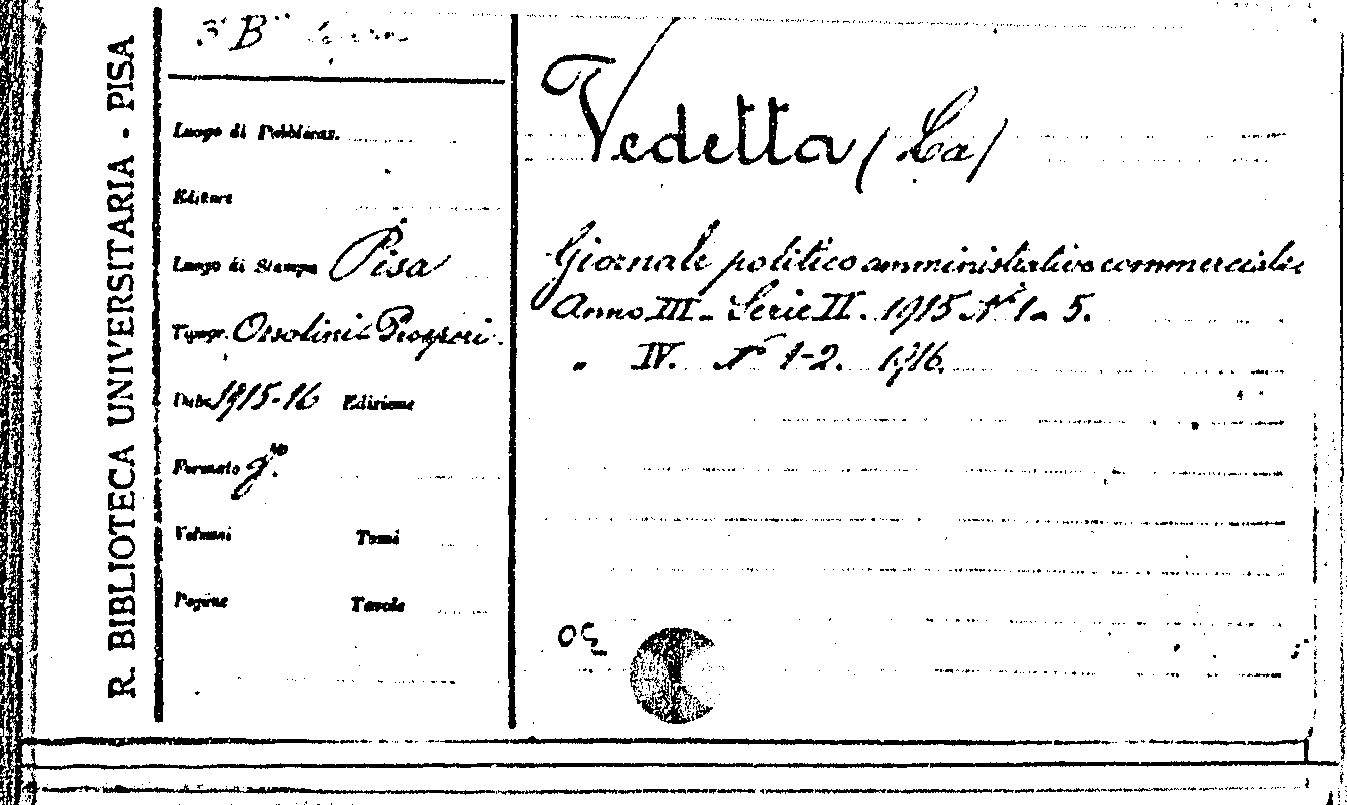 R. BIBLIOTECA UNIVERSITARIA - PISA
3ª B"
Luogo di Pubblicaz.
Editore
Luogo di Stampa Pisa
Tipogr. Orsolini-Prosperi.
Data 1915-16 Edizione
Formato
Volumi Tomi
Pagine Tavole
Vedetta (La)
Giornale politico amministrativo commerciale
Anno III - Serie II. 1915 Nⁱ 1a 5.
" IV. Nⁱ 1-2. 1916.